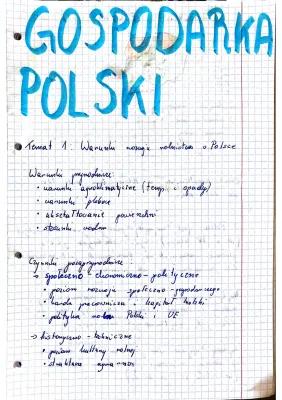 GOSPODARKA
POLSKI
Temat 1: Warunki rozwoju rolnictwa w Polsce
Warunki przyrodnicze:
• warunki agroklimatyczne (temp. i opady)
• warunki glebowe
• ukształtowanie powierzchni
• stosunki wodne
Czynniki pozaprzyrodnicze:
→ społeczno-ekonomiczno-polityczne
• poziom rozwoju społeczno-gospodarczego
• pracownicza i kapitał ludzki
• polityka rolna Polski i UE
→ historyczno-techniczne
• poziom kultury rolnej
• struktura agrarna